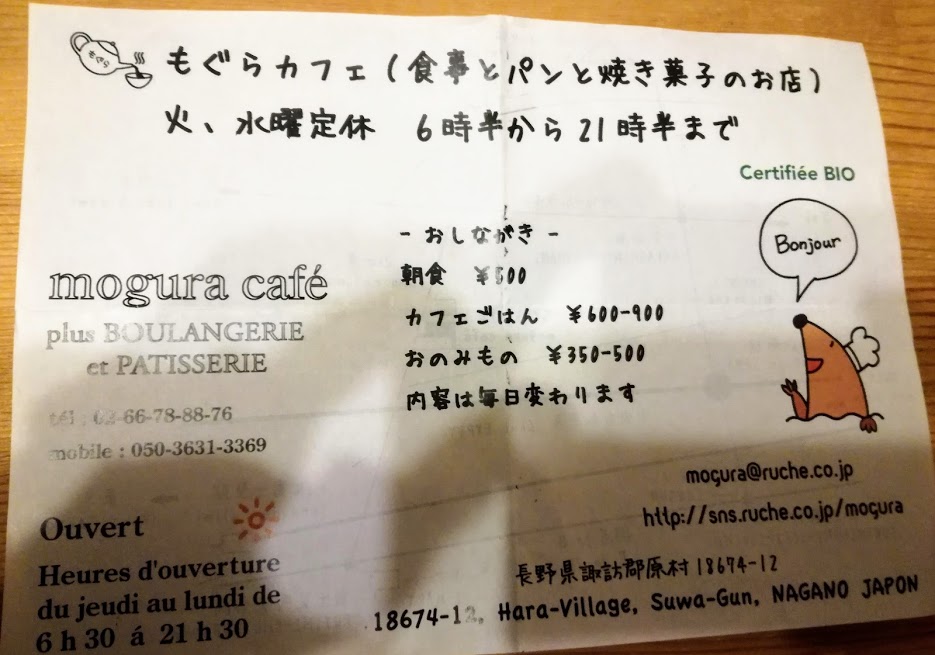 もぐらカフェ(食事とパンと焼き菓子のお店)
火、水曜定休 6時半から21時半まで
Certifiée BIO
Bonjour
- おしながき -
朝食 ¥500
カフェごはん ¥600-900
おのみもの ¥350-500
内容は毎日変わります
mogura café
plus BOULANGERIE
et PATISSERIE
tél : 02-66-78-88-76
mobile : 050-3631-3369
Ouvert
Heures d'ouverture
du jeudi au lundi de
6 h 30 á 21 h 30
mogura@ruche.co.jp
http://sns.ruche.co.jp/mogura
長野県諏訪郡原村18674-12
18674-12, Hara-Village, Suwa-Gun, NAGANO JAPON